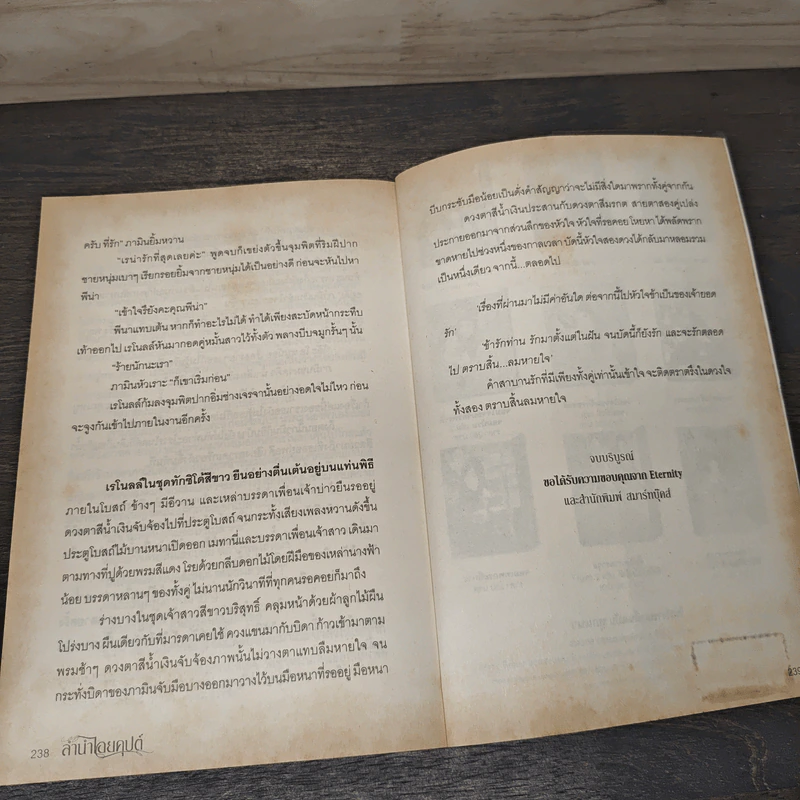 ครับ ที่รัก" ภามินยิ้มหวาน
"เรน่ารักที่สุดเลยค่ะ" พูดจบก็เขย่งตัวขึ้นจุมพิตที่ริมฝีปาก
ชายหนุ่มเบาๆ เรียกรอยยิ้มจากชายหนุ่มได้เป็นอย่างดี ก่อนจะหันไปหา
พีน่า
"เข้าใจรึยังคะคุณพีน่า"
พีน่าแทบเต้น หากก็ทำอะไรไม่ได้ ทำได้เพียงสะบัดหน้ากระทืบ
เท้าออกไป เรโนลล์หันมากอดคู่หมั้นสาวไว้ทั้งตัว พลางบีบจมูกรั้นๆ นั้น
"ร้ายนักนะเรา"
ภามินหัวเราะ "ก็เขาเริ่มก่อน"
เรโนลล์ก้มลงจุมพิตปากอิ่มช่างเจรจานั้นอย่างอดใจไม่ไหว ก่อน
จะจูงกันเข้าไปภายในงานอีกครั้ง
เรโนลล์ในชุดทักซิโด้สีขาว ยืนอย่างตื่นเต้นอยู่บนแท่นพิธี
ภายในโบสถ์ ข้างๆ มีอีวาน และเหล่าบรรดาเพื่อนเจ้าบ่าวยืนรออยู่
ดวงตาสีน้ำเงินจับจ้องไปที่ประตูโบสถ์ จนกระทั่งเสียงเพลงหวานดังขึ้น
ประตูโบสถ์ไม้บานหนาเปิดออก เมทานี่และบรรดาเพื่อนเจ้าสาว เดินมา
ตามทางที่ปูด้วยพรมสีแดง โรยด้วยกลีบดอกไม้โดยฝีมือของเหล่านางฟ้า
น้อย บรรดาหลานๆ ของทั้งคู่ ไม่นานนักวินาทีที่ทุกคนรอคอยก็มาถึง
ร่างบางในชุดเจ้าสาวสีขาวบริสุทธิ์ คลุมหน้าด้วยผ้าลูกไม้ผืน
โปร่งบาง ผืนเดียวกับที่มารดาเคยใช้ ควงแขนมากับบิดา ก้าวเข้ามาตาม
พรมช้าๆ ดวงตาสีน้ำเงินจับจ้องภาพนั้นไม่วางตาแทบลืมหายใจ จน
กระทั่งบิดาของภามินจับมือบางออกมาวางไว้บนมือหนาที่รออยู่ มือหนา
238 ลำนำไอยคุปต์
บีบกระชับมือน้อยเป็นดังคำสัญญาว่าจะไม่มีสิ่งใดมาพรากทั้งคู่จากกัน
ดวงตาสีน้ำเงินประสานกับดวงตาสีมรกต สายตาสองคู่เปล่ง
ประกายออกมาจากส่วนลึกของหัวใจ หัวใจที่รอคอย โหยหา ได้พลัดพราก
ขาดหายไปช่วงหนึ่งของกาลเวลา บัดนี้หัวใจสองดวงได้กลับมาหลอมรวม
เป็นหนึ่งเดียว จากนี้...ตลอดไป
'เรื่องที่ผ่านมาไม่มีค่าอันใด ต่อจากนี้ไปหัวใจข้าเป็นของเจ้ายอด
รัก'
'ข้ารักท่าน รักมาตั้งแต่ในฝัน จนบัดนี้ก็ยังรัก และจะรักตลอด
ไป ตราบสิ้น...ลมหายใจ'
คำสาบานรักที่มีเพียงทั้งคู่เท่านั้นเข้าใจ จะติดตราตรึงในดวงใจ
ทั้งสอง ตราบสิ้นลมหายใจ
จบบริบูรณ์
ขอได้รับความขอบคุณจาก Eternity
และสำนักพิมพ์ สมาร์ทบุ๊คส์
239